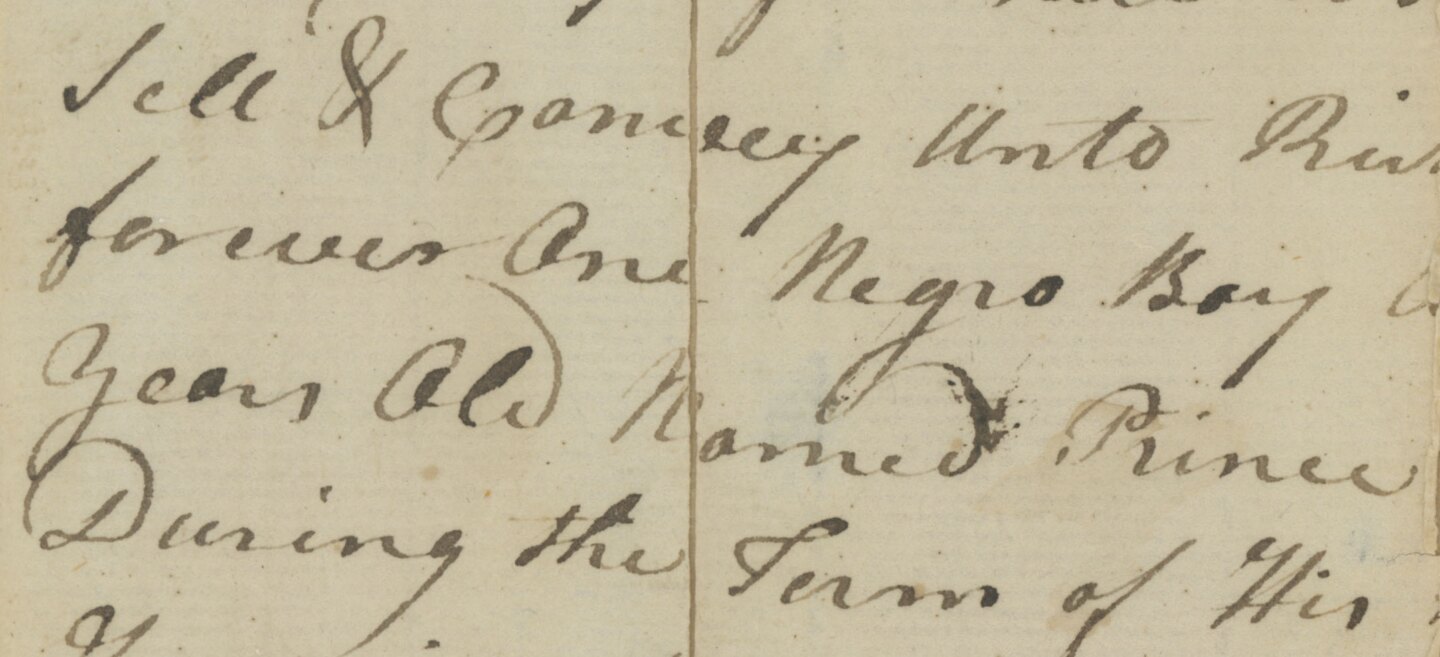 Sell & Convey Unto
forever One Negro Boy
Years Old Named Prince
During the Term of His